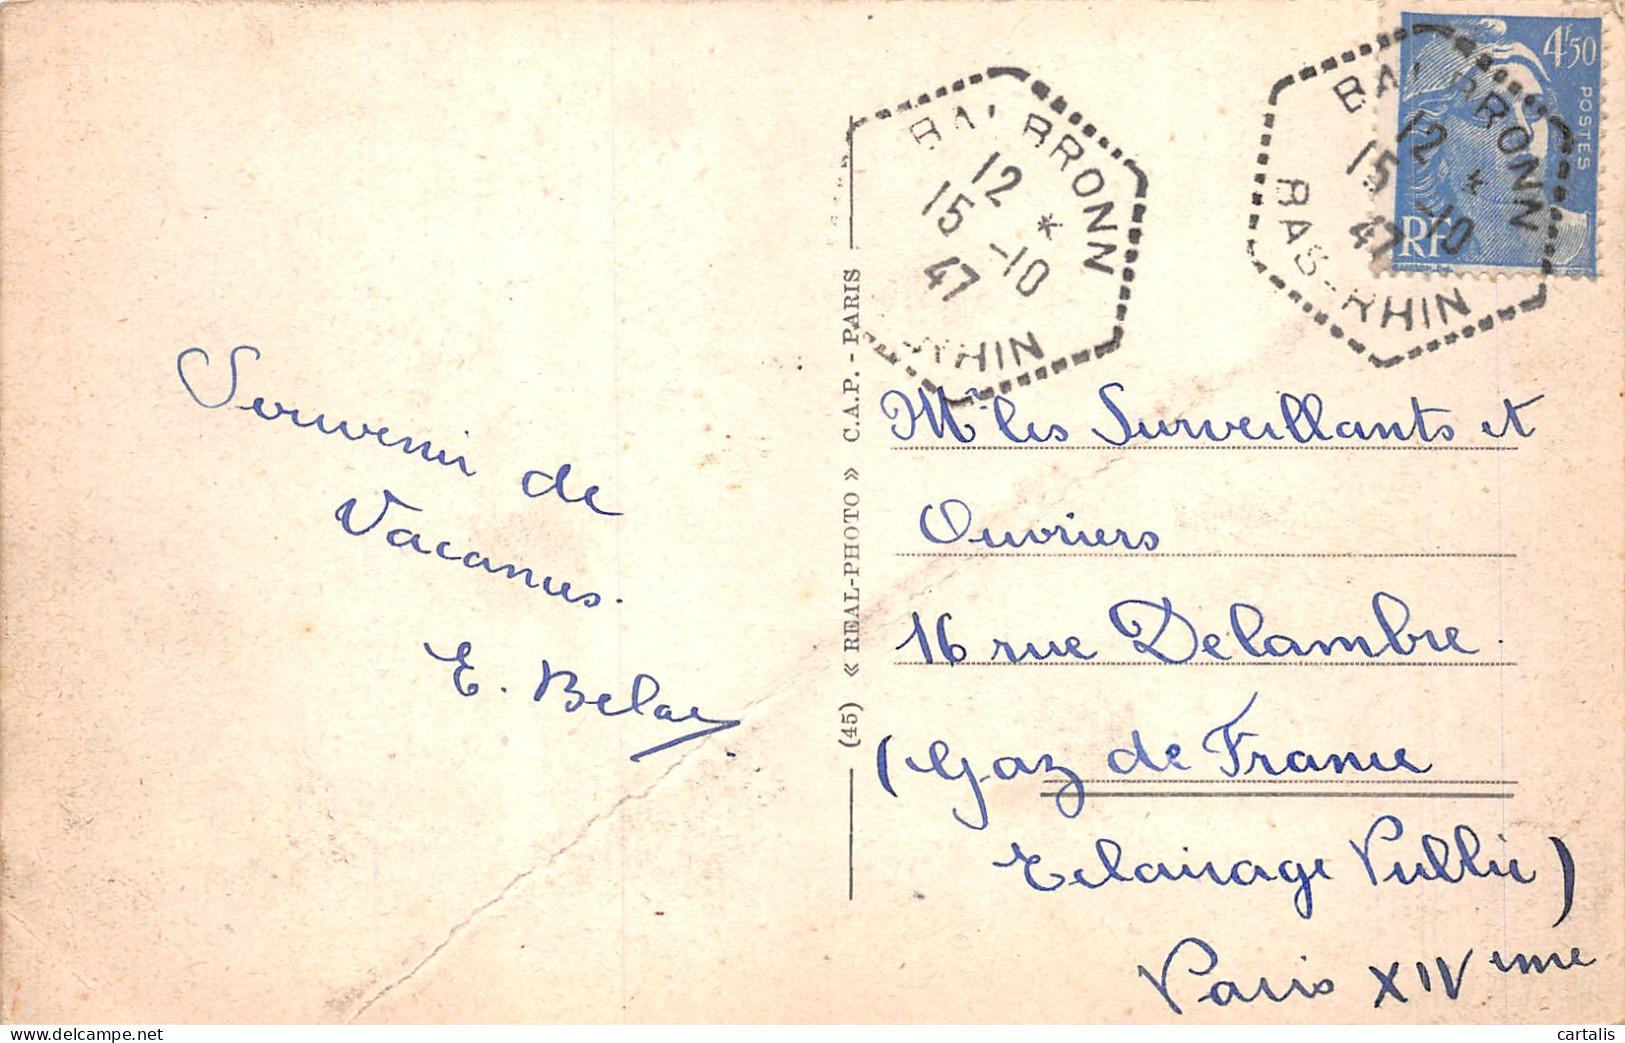 Souvenir de
Vacances.
(45) « REAL-PHOTO » C.A.P. - PARIS
BALBRONN
12 *
15 -10
47
RHIN
4F50
POSTES
RF
BALBRONN
12 *
15 -10
47
BAS-RHIN
Mr les Surveillants et
Ouvriers
16 rue Delambre.
(Gaz de France
Eclairage Public)
Paris XIVeme
cartalis
delcampe.net